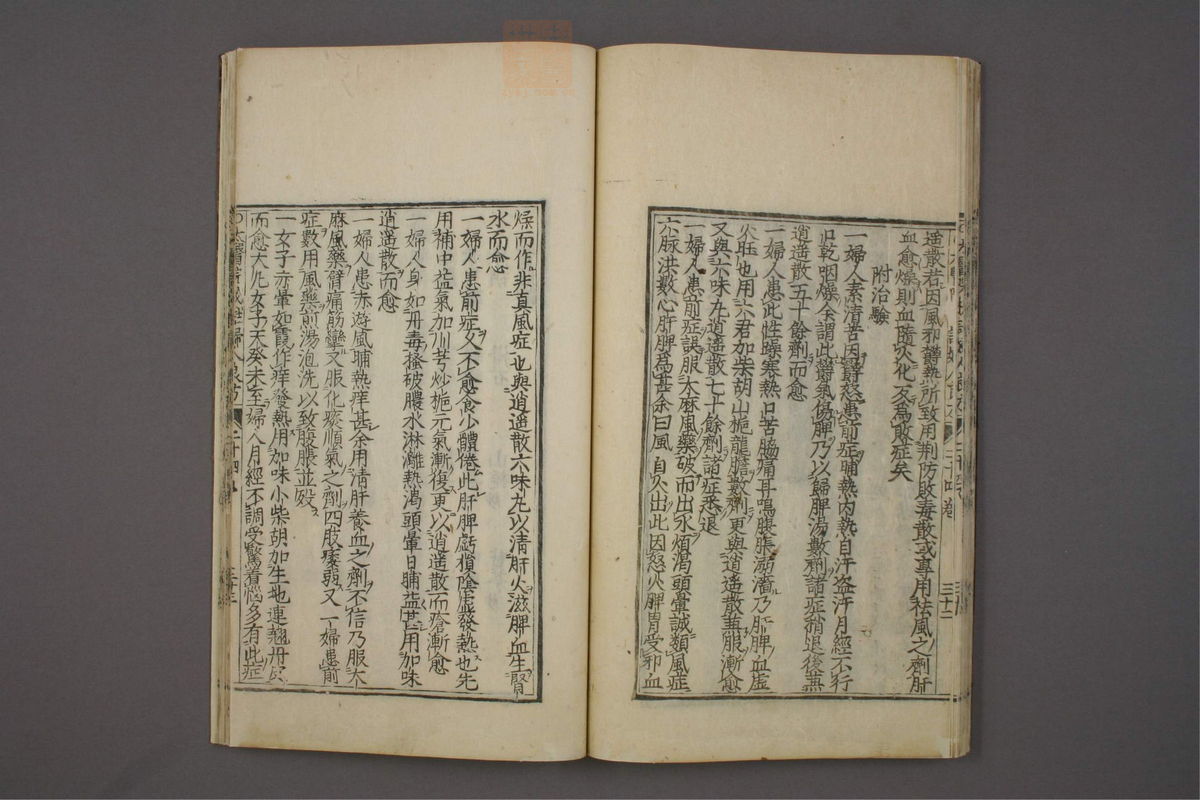 遥散若因風邪欝熱所致用荆防敗毒散或專用祛風之劑肝
血愈燥則血隨火化反為敗症矣
附治驗
一婦人素清苦因欝怒患前症晡熱内熱自汗盗汗月經不行
口乾咽燥余謂此欝氣傷脾乃以歸脾湯數劑諸症稍退後兼
逍遥散五十餘劑而愈
一婦人患此性躁寒熱口苦脇痛耳鳴腹脹溺澁乃肝脾血虚
火旺也用六君加柴胡山梔龍膽數劑更與逍遥散兼服漸愈
又與六味丸逍遥散七十餘劑諸症悉退
一婦人患前症誤服大麻風藥破而出水煩渴頭暈誠類風症
六脉洪數心肝脾為甚余曰風自火出此因怒火脾胃受邪血
燥而作非真風症也與逍遥散六味丸以清肝火滋脾血生腎
水而愈
一婦人患前症久不愈食少體倦此肝脾虧損陰虚發熱也先
用補中益氣加川芎炒梔元氣漸復更以逍遥散而瘡漸愈
一婦人身如丹毒搔破膿水淋漓熱渴頭暈日晡益甚用加味
逍遥散而愈
一婦人患赤遊風晡熱痒甚余用清肝養血之劑不信乃服大
麻風藥臂痛筋攣又服化痰順氣之劑四肢痿弱又一婦患前
症數用風藥煎湯泡洗以致腹脹並殁
一女子赤暈如霞作痒發熱用加味小柴胡加生地連翹丹皮
而愈大凡女子天癸未至婦人月經不調受驚着惱多有此症